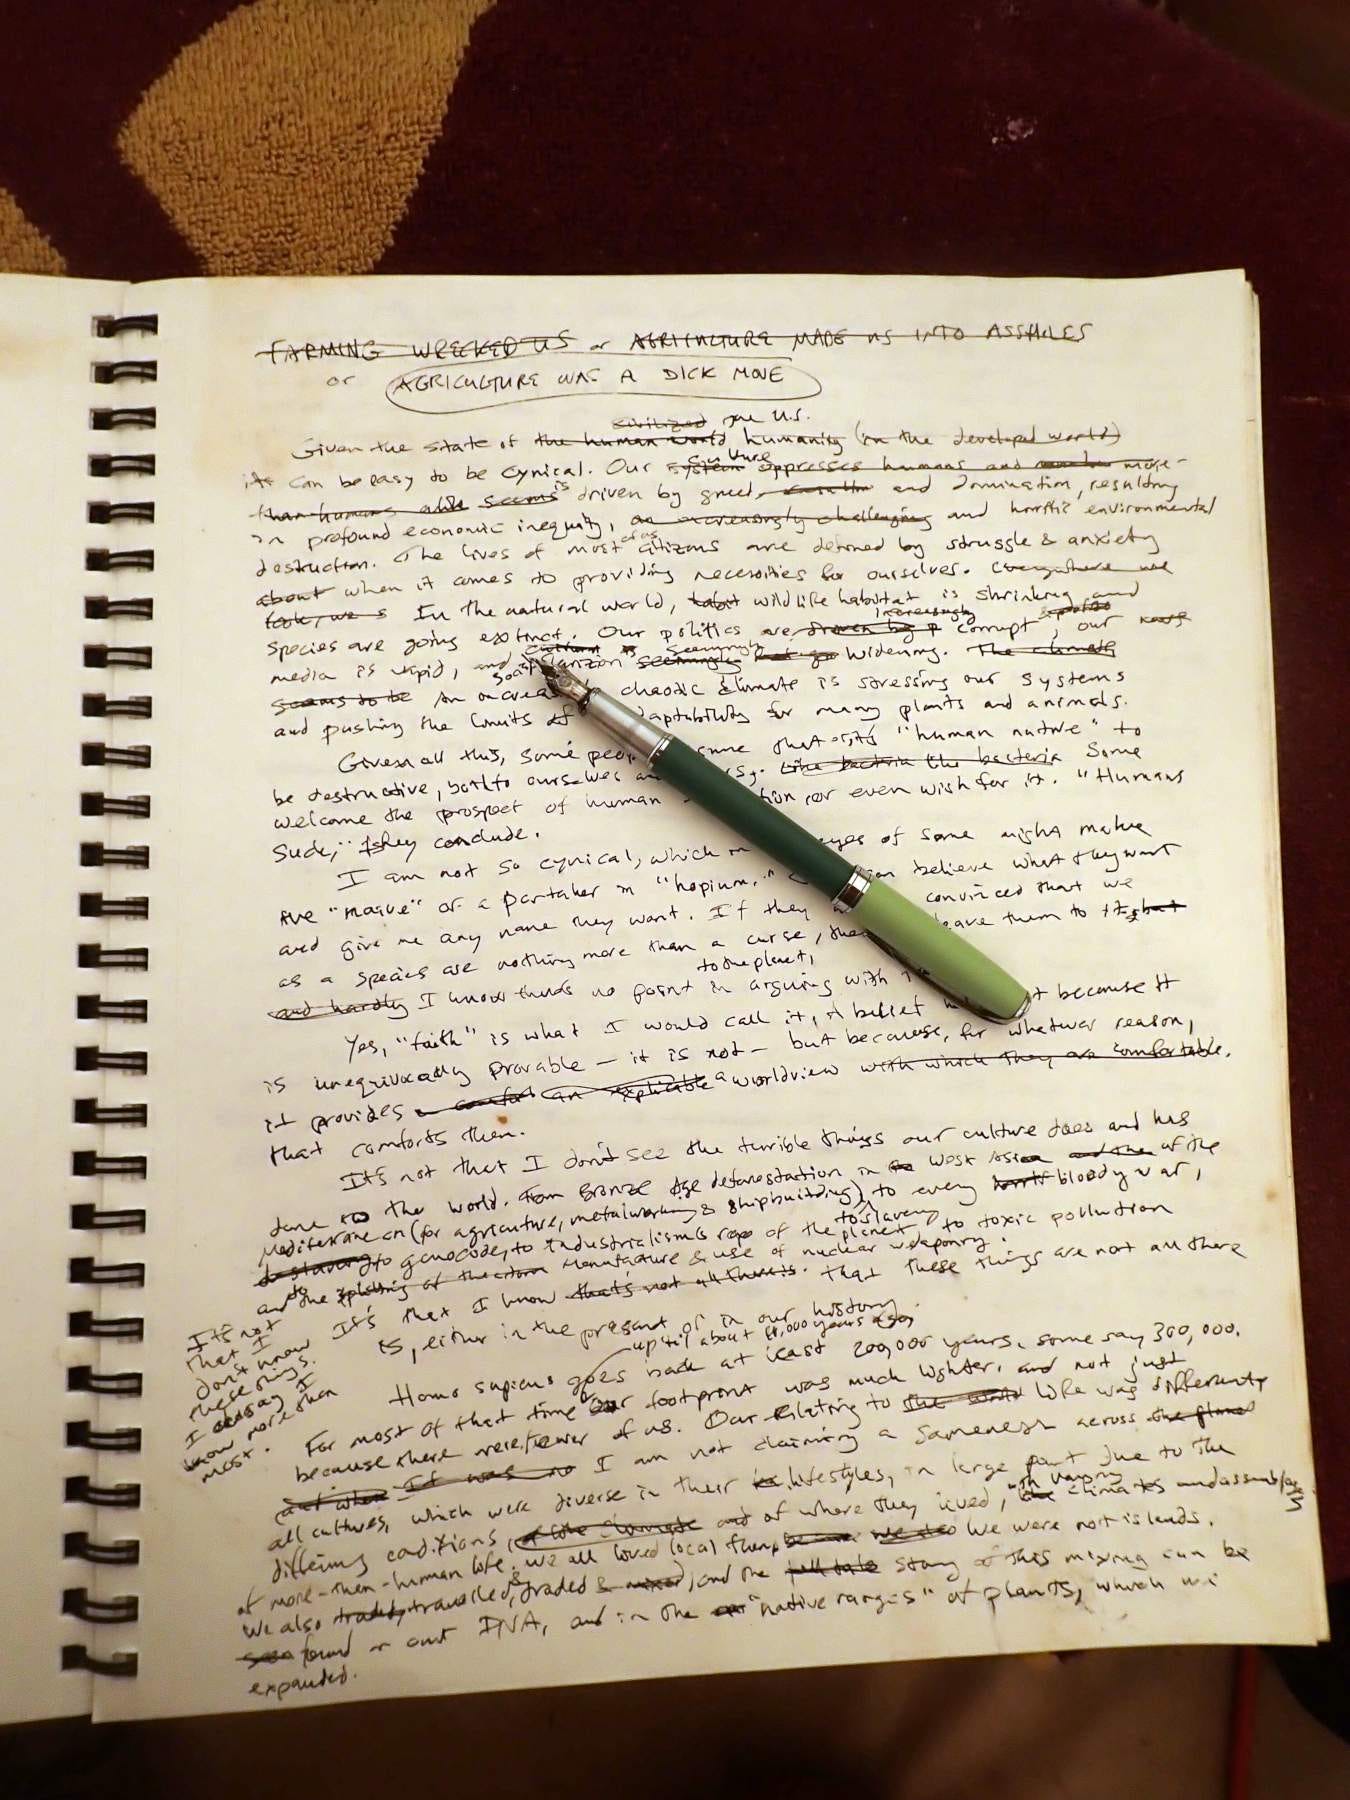 FARMING WRECKED US or AGRICULTURE MADE us INTO ASSHOLES
or AGRICULTURE WAS A DICK MOVE
civilized the U.S.
Given the state of the human world humanity (in the developed world)
culture
it can be easy to be cynical. Our system oppresses humans and more-
than-humans alike seems is driven by greed and domination, resulting
in profound economic inequity, an increasingly challenging and horrific environmental
destruction. The lives of most of us citizens are defined by struggle & anxiety
about when it comes to providing necessities for ourselves. Everywhere we
look, we s In the natural world, habit wildlife habitat is shrinking and
increasingly
species are going extinct. Our politics are driven by corrupt, our
seemingly
media is vapid, and social seemingly widening. The climate
seems to be An chaotic climate is stressing our systems
and pushing the limits of for many plants and animals.
Given all this, some that it's "human nature" to
be destructive, both to ourselves Like bacteria like bacteria Some
welcome the prospect of human or even wish for it. "Humans
Suck," they conclude.
I am not so cynical, which in eyes of some might make
me "naive" or a partaker in "hopium." believe what they want
and give me any name they want. If they convinced that we
as a species are nothing more than a curse, leave them to it, but
to the planet,
and hardly I know there's no point in arguing with
Yes, "faith" is what I would call it, A belief because it
is unequivocally provable – it is not – but because, for whatever reason,
it provides an explicable a worldview with which they are comfortable.
that comforts them.
It's not that I don't see the terrible things our culture does and has
done to the world. From Bronze Age deforestation in West Asia and the of the
Mediterranean (for agriculture, metalworking & shipbuilding) to every bloody war,
to slavery
to slavery to genocide, to industrialism's rape of the planet to toxic pollution
and to the splitting of the atom manufacture & use of nuclear weaponry.
It's that I know that's not all there is. that these things are not all there
is, either in the present or in our history.
It's not
that I
don't know
these things.
I dare say I
know more than
most.
up til about years ago,
Homo sapiens goes back at least 200,000 years, some say 300,000.
For most of that time our footprint was much lighter, and not just
because there were fewer of us. Our relating to the world life was different
It was no I am not claiming a sameness across the planet
all cultures, which were diverse in their lifestyles, in large part due to the
with varying
differing conditions of the climate and of where they lived, climates and assemblages
of more-than-human life. we all loved local We were not islands.
We also traded, travelled, traded & mixed, and the story of this mixing can be
seen found in our DNA, and in the "native ranges" of plants, which we
expanded.